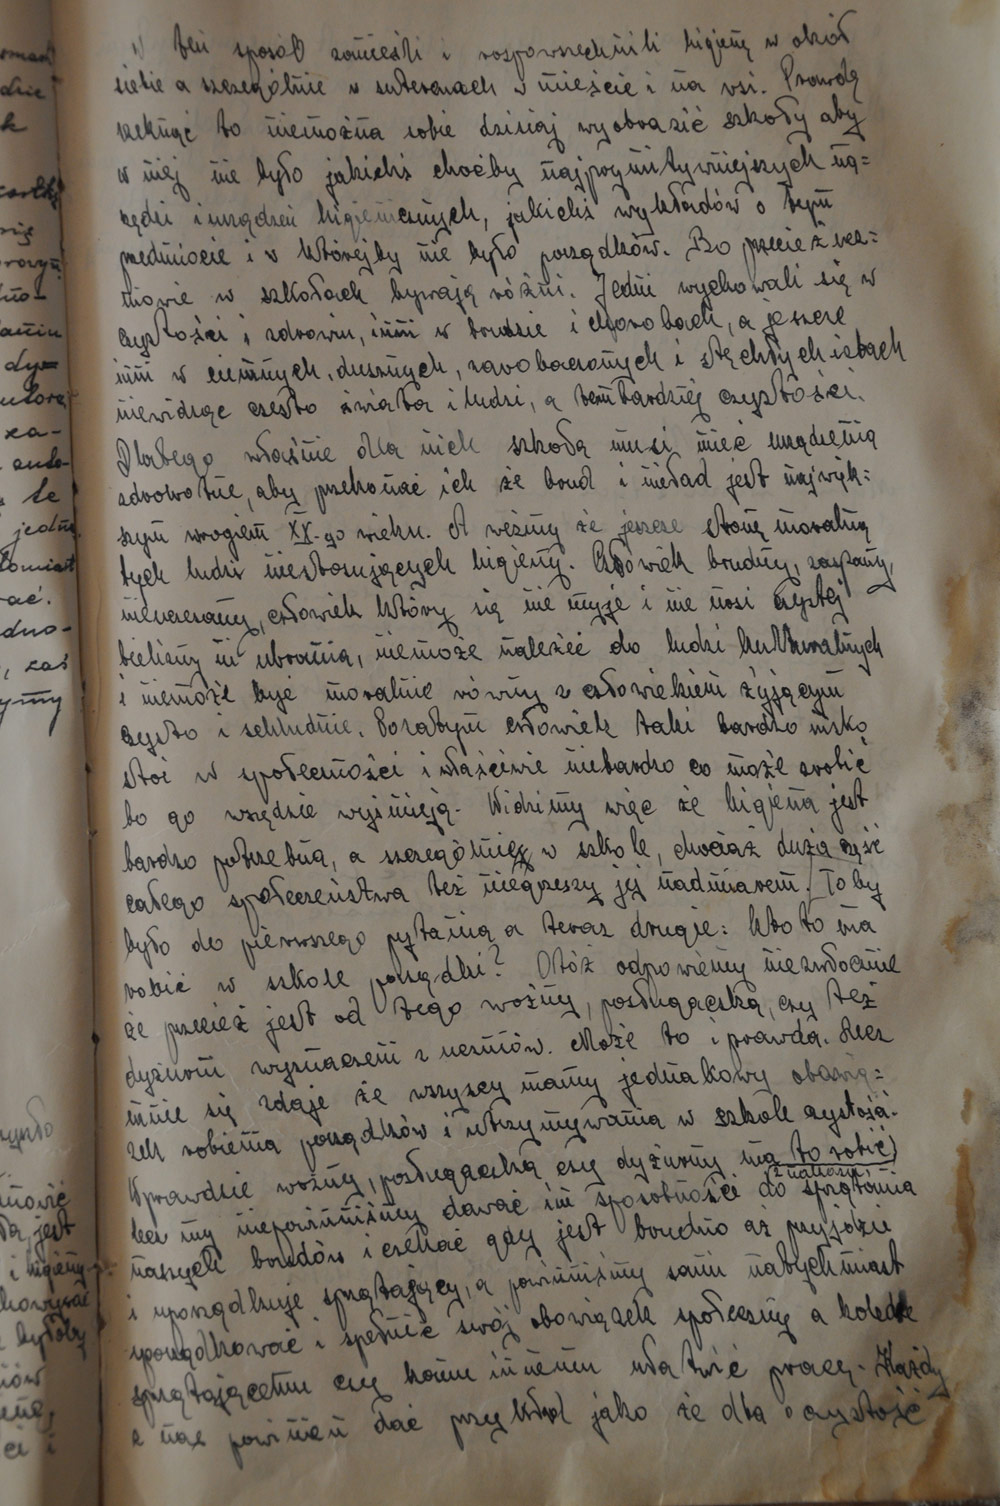 w ten sposób zanieśli i rozpowszechnili higjenę w okół
siebie a szczególnie w suterenach w mieście i na wsi. Prawdę
rzeknąć to niemożna sobie dzisiaj wyobrazić szkoły aby
w niej nie było jakichś choćby najprymitywniejszych na=
rzędzi i urządzeń higienicznych, jakichś wykładów o tym
przedmiocie i w którejby nie było porządków. Bo przecież ucz=
niowie w szkołach bywają różni. Jedni wychowali się w
czystości i zdrowiu, inni w brudzie i chorobach, a jeszcze
inni w ciemnych, dusznych, zarobaczonych i stęchłych izbach
niewidząc często świata i ludzi, a tembardziej czystości.
Dlatego właśnie dla nich szkoła musi mieć urządzenia
zdrowotne, aby przekonać ich że brud i nieład jest najwięk=
szym wrogiem XX-go wieku. A weźmy że jeszcze stronę moralną
tych ludzi niestosujących higjeny. Człowiek brudny, zaspany,
nieuczesany, człowiek który się nie myje i nie nosi czystej
bielizny ni ubrania, niemoże należeć do ludzi kulturalnych
i niemoże być moralnie równy z człowiekiem żyjącym
czysto i schludnie. Pozatym człowiek taki bardzo nisko
stoi w społeczności i właściwie niebardzo co może zrobić
bo go wszędzie wyśmieją. Widzimy więc że higjena jest
bardzo potrzebna, a szczególnie w szkole, chociaż duża część
całego społeczeństwa też niegrzeszy jej nadmiarem. To by
było do pierwszego pytania a teraz drugie: Kto to ma
robić w szkole porządki? Otóż odpowiemy niezwłocznie
że przecież jest od tego woźny, posługaczka, czy też
dyżurni wyznaczeni z uczniów. Może to i prawda. Lecz
mnie się zdaje że wszyscy mamy jednakowy obowią=
zek robienia porządków i utrzymywania w szkole czystości.
Wprawdzie woźny, posługaczka czy dyżurny ma to robić
lecz my niepowinniśmy dawać im sposobności do sprzątania
naszych brudów i czekać gdy jest brudno aż przyjdzie
i uporządkuje sprzątający, a powinniśmy sami natychmiast
uporządkować i spełnić swój obowiązek społeczny a koledze
sprzątającemu czy komu innemu ułatwić pracę. Każdy
z nas powinien dać przykład jako że dba o czystość